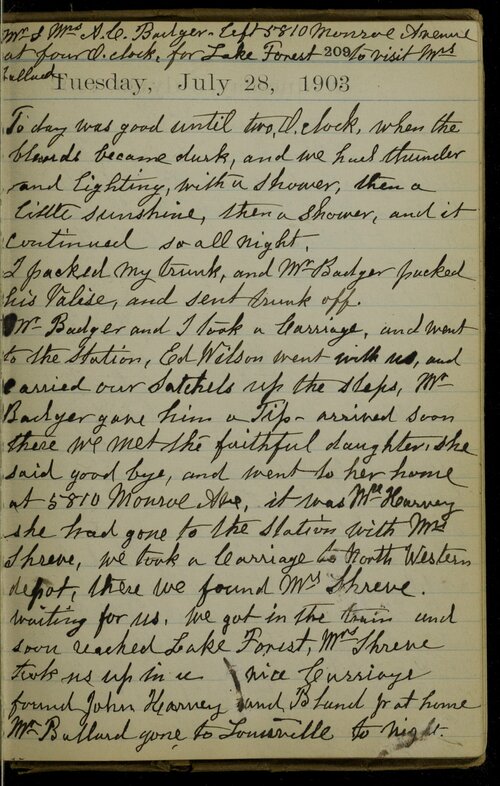 Mr & Mrs A.C. Badger - Left 5810 Monroe Avenue
at four O. clock, for Lake Forest 209 to visit Mrs
Ballard
Tuesday, July 28, 1903
To day was good until two, O. clock, when the
clouds became dark, and we had thunder
and lighting, with a shower, then a
little sunshine, then a shower, and it
continued so all night.
I packed my trunk, and Mr Badger packed
his Valise, and sent trunk off.
Mr Badger and I took a Carriage, and went
to the Station, Ed Wilson went with us, and
carried our Satchels up the steps, Mr
Badger gave him a Tip - arrived soon
there we met the faithful daughter, she
said good bye, and went to her home
at 5810 Monroe Ave, it was Harvey
she had gone to the Station with Mrs
Shreve, we took a Carriage to North Western
depot, there we found Mrs Shreve.
waiting for us, we got in the train and
soon reached Lake Forest, Mrs Shreve
took us up in a nice Carriage
found John Harvey and Bland Jr at home
Mr Ballard gone to Louisville to night.